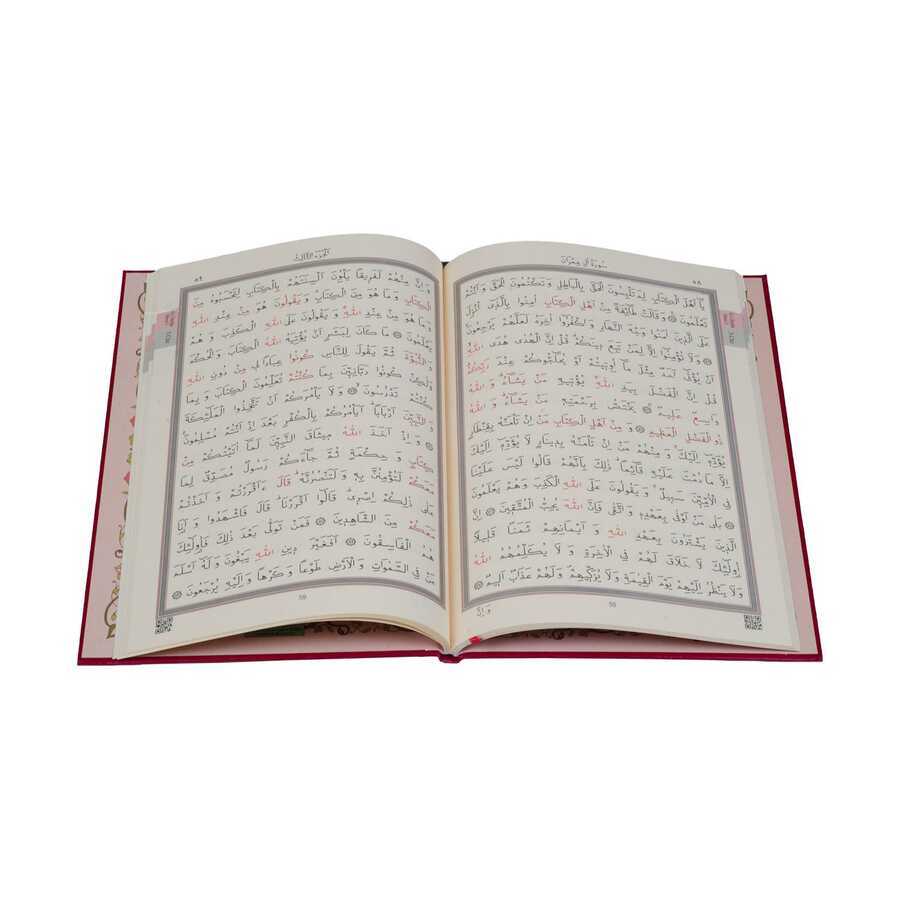 سُورَةُ اٰلِ عِمْرٰنَ
٥٨
يَا اَهْلَ الْكِتَابِ لِمَ تَلْبِسُونَ الْحَقَّ بِالْبَاطِلِ وَ تَكْتُمُونَ الْحَقَّ وَ اَنْتُمْ
تَعْلَمُونَ ۞ وَ قَالَتْ طَائِفَةٌ مِنْ اَهْلِ الْكِتَابِ اٰمِنُوا بِالَّذِي اُنْزِلَ
عَلَى الَّذِينَ اٰمَنُوا وَجْهَ النَّهَارِ وَ اكْفُرُوا اٰخِرَهُ لَعَلَّهُمْ يَرْجِعُونَ
۞ وَ لَا تُؤْمِنُوا اِلَّا لِمَنْ تَبِعَ دِينَكُمْ قُلْ اِنَّ الْهُدٰى هُدَى اللّٰهِ
اَنْ يُؤْتٰى اَحَدٌ مِثْلَ مَا اُوتِيتُمْ اَوْ يُحَاجُّوكُمْ عِنْدَ رَبِّكُمْ
قُلْ اِنَّ الْفَضْلَ بِيَدِ اللّٰهِ يُؤْتِيهِ مَنْ يَشَاءُ وَ اللّٰهُ
وَاسِعٌ عَلِيمٌ ۞ يَخْتَصُّ بِرَحْمَتِهِ مَنْ يَشَاءُ وَ اللّٰهُ
ذُو الْفَضْلِ الْعَظِيمِ ۞ وَ مِنْ اَهْلِ الْكِتَابِ مَنْ اِنْ تَأْمَنْهُ بِقِنْطَارٍ
يُؤَدِّهِ اِلَيْكَ وَ مِنْهُمْ مَنْ اِنْ تَأْمَنْهُ بِدِينَارٍ لَا يُؤَدِّهِ اِلَيْكَ
اِلَّا مَا دُمْتَ عَلَيْهِ قَائِمًا ذٰلِكَ بِاَنَّهُمْ قَالُوا لَيْسَ عَلَيْنَا
فِي الْاُمِّيِّنَ سَبِيلٌ وَ يَقُولُونَ عَلَى اللّٰهِ الْكَذِبَ وَ هُمْ يَعْلَمُونَ
۞ بَلٰى مَنْ اَوْفٰى بِعَهْدِهِ وَ اتَّقٰى فَاِنَّ اللّٰهَ يُحِبُّ الْمُتَّقِينَ ۞ اِنَّ
الَّذِينَ يَشْتَرُونَ بِعَهْدِ اللّٰهِ وَ اَيْمَانِهِمْ ثَمَنًا قَلِيلًا
اُولٰئِكَ لَا خَلَاقَ لَهُمْ فِي الْاٰخِرَةِ وَ لَا يُكَلِّمُهُمُ اللّٰهُ
وَ لَا يَنْظُرُ اِلَيْهِمْ يَوْمَ الْقِيٰمَةِ وَ لَا يُزَكِّيهِمْ وَ لَهُمْ عَذَابٌ اَلِيمٌ ۞
وَ اِنَّ
اَلْجُزْءُ الثَّالِثُ
٥٩
وَ اِنَّ مِنْهُمْ لَفَرِيقًا يَلْوُنَ اَلْسِنَتَهُمْ بِالْكِتَابِ لِتَحْسَبُوهُ مِنَ
الْكِتَابِ وَ مَا هُوَ مِنَ الْكِتَابِ وَ يَقُولُونَ هُوَ مِنْ عِنْدِ اللّٰهِ
وَ مَا هُوَ مِنْ عِنْدِ اللّٰهِ وَ يَقُولُونَ عَلَى اللّٰهِ الْكَذِبَ وَ هُمْ
يَعْلَمُونَ ۞ مَا كَانَ لِبَشَرٍ اَنْ يُؤْتِيَهُ اللّٰهُ الْكِتَابَ وَ الْحُكْمَ
وَ النُّبُوَّةَ ثُمَّ يَقُولَ لِلنَّاسِ كُونُوا عِبَادًا لِي مِنْ دُونِ اللّٰهِ
وَ لٰكِنْ كُونُوا رَبَّانِيِّنَ بِمَا كُنْتُمْ تُعَلِّمُونَ الْكِتَابَ وَ بِمَا
كُنْتُمْ تَدْرُسُونَ ۞ وَ لَا يَأْمُرَكُمْ اَنْ تَتَّخِذُوا الْمَلٰئِكَةَ
وَ النَّبِيِّنَ اَرْبَابًا اَيَأْمُرُكُمْ بِالْكُفْرِ بَعْدَ اِذْ اَنْتُمْ مُسْلِمُونَ
۞ وَ اِذْ اَخَذَ اللّٰهُ مِيثَاقَ النَّبِيِّنَ لَمَا اٰتَيْتُكُمْ مِنْ
كِتَابٍ وَ حِكْمَةٍ ثُمَّ جَاءَكُمْ رَسُولٌ مُصَدِّقٌ لِمَا
مَعَكُمْ لَتُؤْمِنُنَّ بِهِ وَ لَتَنْصُرُنَّهُ قَالَ ءَاَقْرَرْتُمْ وَ اَخَذْتُمْ
عَلٰى ذٰلِكُمْ اِصْرِي قَالُوا اَقْرَرْنَا قَالَ فَاشْهَدُوا وَ اَنَا
مَعَكُمْ مِنَ الشَّاهِدِينَ ۞ فَمَنْ تَوَلّٰى بَعْدَ ذٰلِكَ فَاُولٰئِكَ
هُمُ الْفَاسِقُونَ ۞ اَفَغَيْرَ دِينِ اللّٰهِ يَبْغُونَ وَ لَهُ اَسْلَمَ
مَنْ فِي السَّمٰوَاتِ وَ الْاَرْضِ طَوْعًا وَ كَرْهًا وَ اِلَيْهِ يُرْجَعُونَ ۞
59